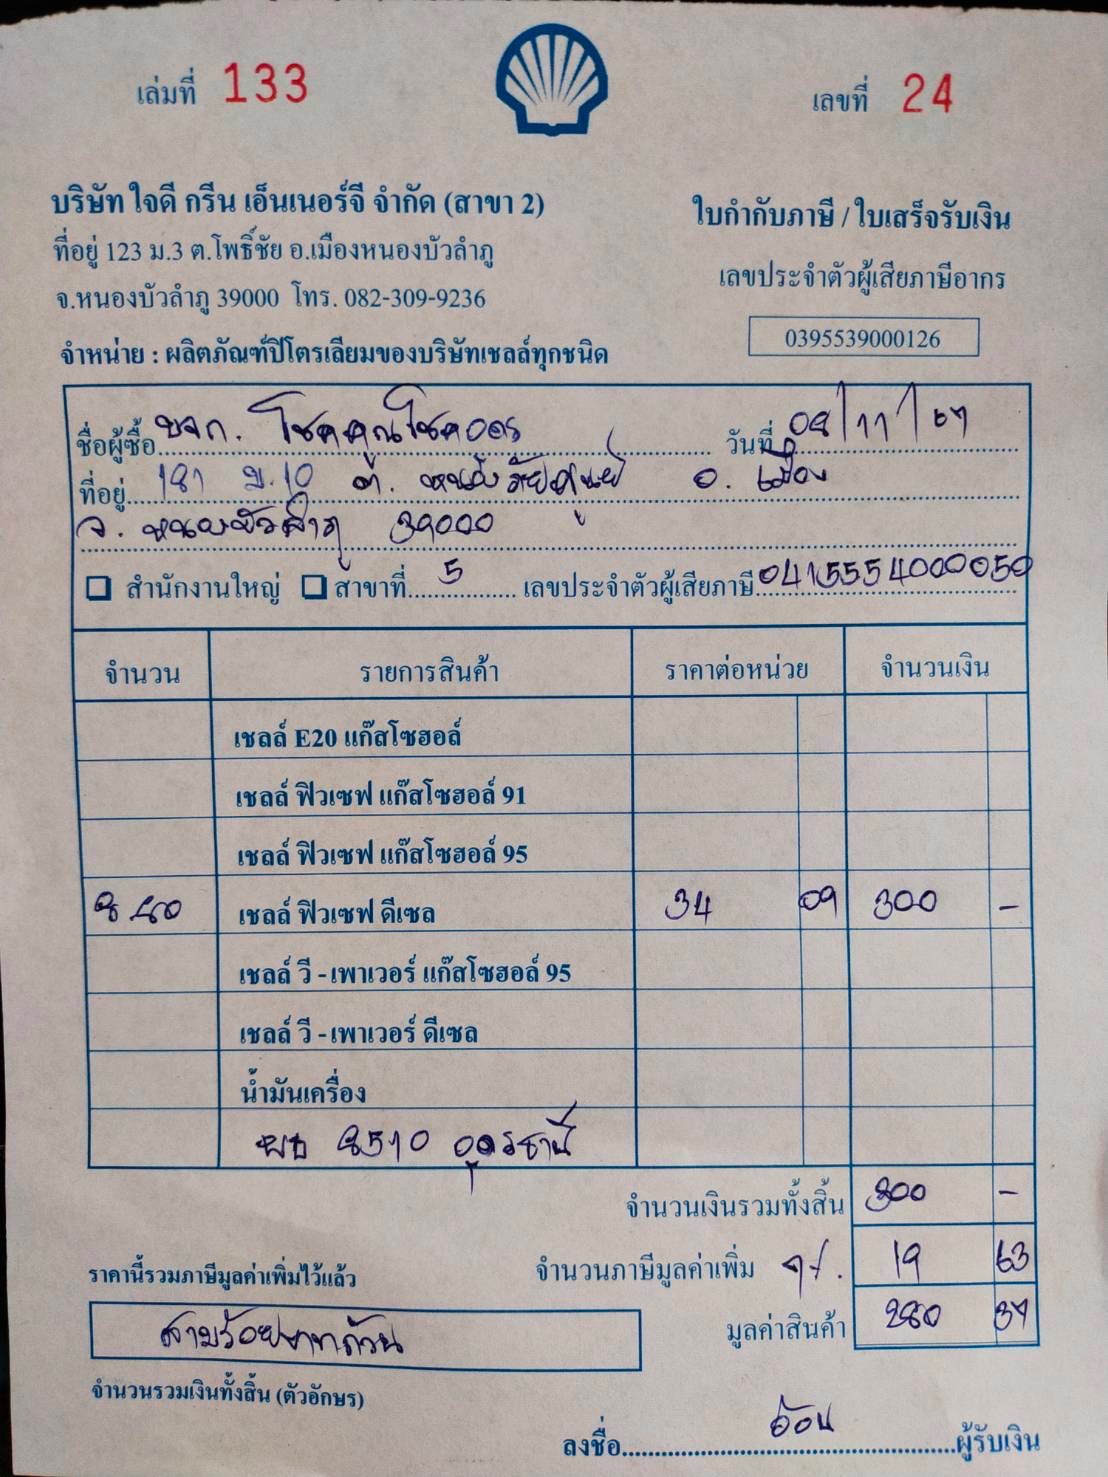 เล่มที่ 133
เลขที่ 24
บริษัท ใจดี กรีน เอ็นเนอร์จี จำกัด (สาขา 2)
ที่อยู่ 123 ม.3 ต.โพธิ์ชัย อ.เมืองหนองบัวลำภู
จ.หนองบัวลำภู 39000 โทร. 082-309-9236
จำหน่าย : ผลิตภัณฑ์ปิโตรเลียมของบริษัทเชลล์ทุกชนิด
ใบกำกับภาษี / ใบเสร็จรับเงิน
เลขประจำตัวผู้เสียภาษีอากร
0395539000126
ชื่อผู้ซื้อ บจก. โชคคูณโชคอุดร วันที่ 08/11/67
ที่อยู่ 181 ม.10 ต. อ. เมือง
จ. หนองบัวลำภู 39000
สำนักงานใหญ่ สาขาที่ 5 เลขประจำตัวผู้เสียภาษี 0415554000050
จำนวน รายการสินค้า ราคาต่อหน่วย จำนวนเงิน
เชลล์ E20 แก๊สโซฮอล์
เชลล์ ฟิวเซฟ แก๊สโซฮอล์ 91
เชลล์ ฟิวเซฟ แก๊สโซฮอล์ 95
8.80 เชลล์ ฟิวเซฟ ดีเซล 34 09 300 -
เชลล์ วี - เพาเวอร์ แก๊สโซฮอล์ 95
เชลล์ วี - เพาเวอร์ ดีเซล
น้ำมันเครื่อง
ผบ 8510 อุดรธานี
จำนวนเงินรวมทั้งสิ้น 300 -
ราคานี้รวมภาษีมูลค่าเพิ่มไว้แล้ว จำนวนภาษีมูลค่าเพิ่ม 7%. 19 63
สามร้อยบาทถ้วน มูลค่าสินค้า 280 37
จำนวนรวมเงินทั้งสิ้น (ตัวอักษร)
ลงชื่อ อ้อน ผู้รับเงิน